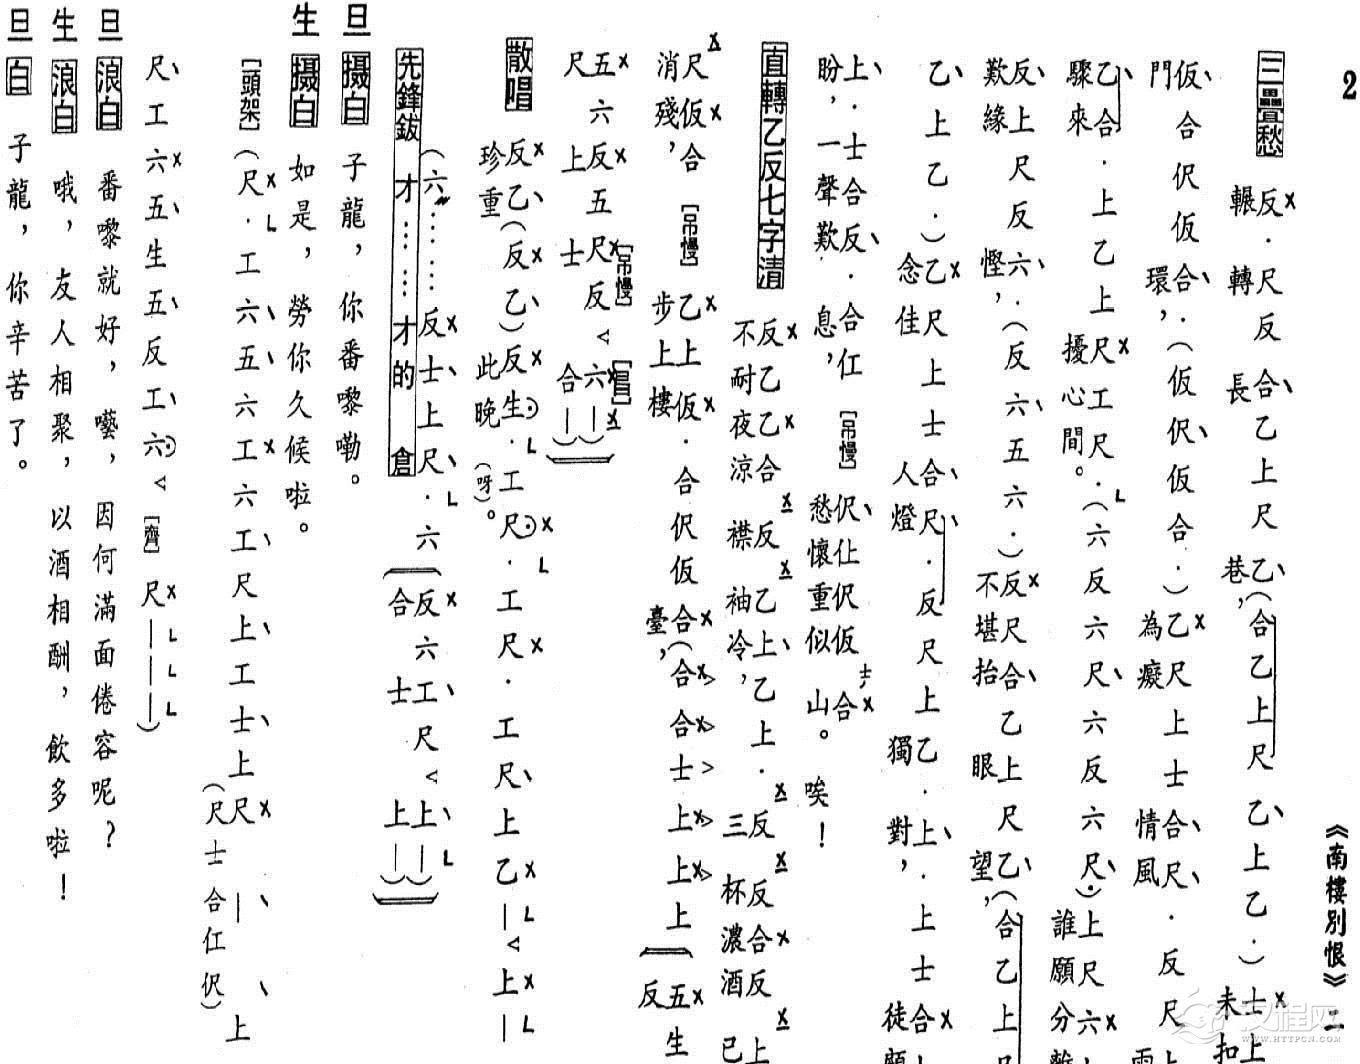 2
《南樓別恨》二
三疊愁 反．尺反合乙上尺乙(合乙上尺乙上乙．)士上
輾轉長巷，未扣
仮合伬仮合．(仮伬仮合．)乙尺上士合尺．反尺
門環，為癡情風
乙合．上乙上尺工尺．(六反六尺六反六尺．)上尺六
驟來擾心間。誰願分
反上尺反六．(反六五六．)反尺合乙上尺乙(合乙上
歎緣慳，不堪抬眼望，
乙上乙．)乙尺上士合尺．反尺上乙．上．上士合
念佳人燈獨對，徒
上．士合反．合仜 [吊慢] 伬仩伬仮士合
盼，一聲歎息，愁懷重似山。唉！
直轉乙反七字清 反乙乙合反乙上乙上．反反合反上
不耐夜涼襟袖冷，三杯濃酒已
尺仮合 [吊慢] 乙上仮．合伬仮合(合合士上上上五生
消殘，步上樓臺，反
五六反五尺反 [吊慢] 六 [昌]
尺上士合
散唱 反乙(反乙)反生．工尺．工尺．工尺上乙｜上｜
珍重此晚(呀)。
(六⋯⋯反士上尺．六反六工尺上｜)
合士上｜
先鋒鈸 才⋯⋯才的倉
旦 攝白 子龍，你番嚟嘞。
生 攝白 如是，勞你久候啦。
[頭架] (尺．工六五六工六工尺上工士上尺｜上
(尺士合仜伬)
尺工六五生五反工六 [齊] 尺｜｜｜)
旦 浪白 番嚟就好，囈，因何滿面倦容呢？
生 浪白 哦，友人相聚，以酒相酬，飲多啦！
旦 白 子龍，你辛苦了。
汉程网
WWW.HTTPCN.COM